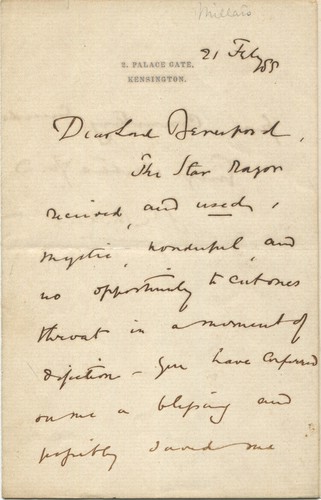 Millais
21 Feby 88
2. PALACE GATE,
KENSINGTON.
Dear Lord Beresford,
The Star Razor
received, and used,
mystic, wonderful, and
no opportunity to cut ones
throat in a moment of
dejection – you have conferred
on me a blessing and
possibly saved me